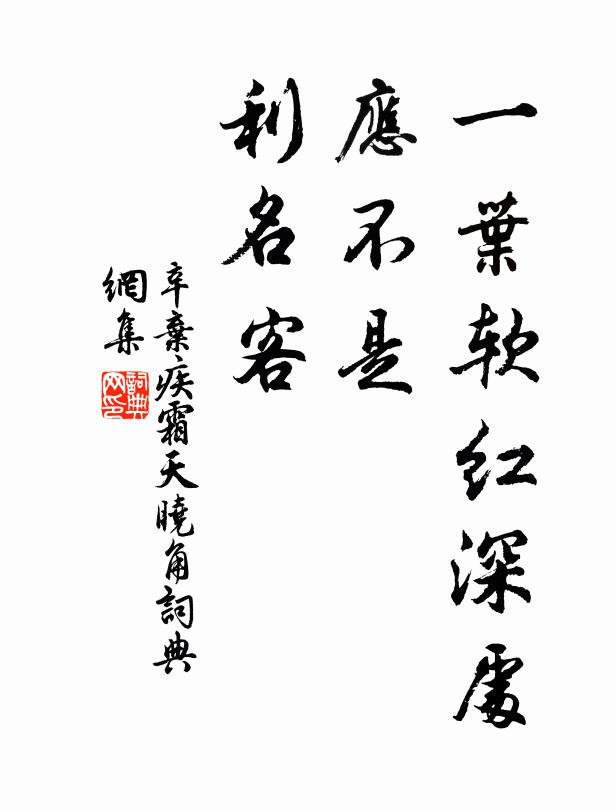 一葉軟紅深處
應不是
利名客
辛棄疾霜天曉角詞典
網集
詞典
网印